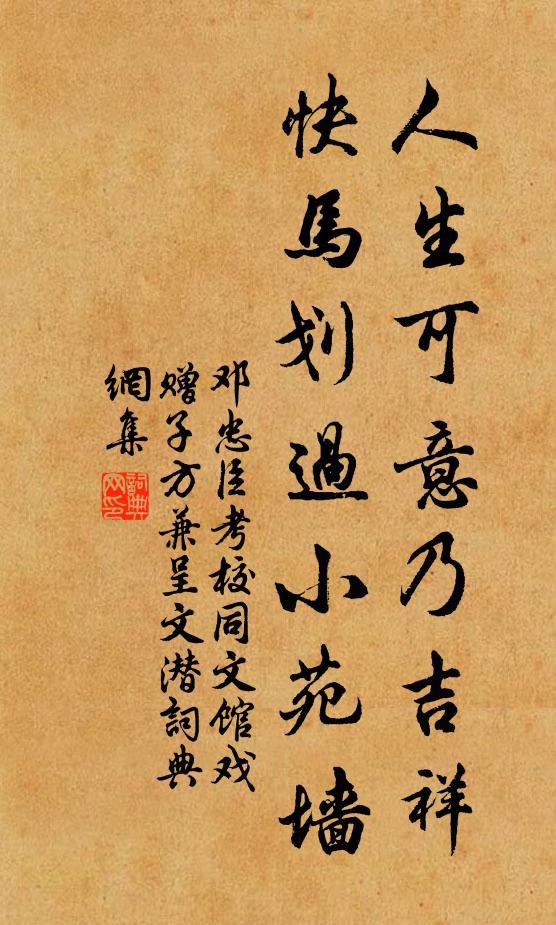 人生可意乃吉祥
快馬划過小苑墙
邓忠臣考校同文馆戏
赠子方兼呈文潜詞典
網集
詞典
网印